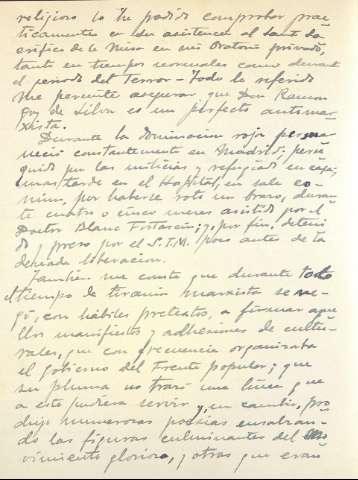 religioso lo he podido comprobar prac-
ticamente en su asistencia al Santo Sa-
crificio de la Misa en mi Oratorio privado,
tanto en tiempos normales como durante
el periodo del terror - Todo lo referido
me permite asegurar que Don Ramon
Goy de Silva es un perfecto antimar-
xista.
Durante la dominacion roja perma-
neció constantemente en Madrid, perse-
guido por las milicias y refugiado en casa;
mas tarde en el Hospital, en sala co-
mun, por haberse roto un brazo, duran-
te cuatro o cinco meses asistido por el
Doctor Blanc Fortacin; y, por fin, deteni-
do y preso por el S.I.M. poco antes de la
deseada liberacion.
Tambien me consta que durante todo
el tiempo de tirania marxista se ne-
gó, con hábiles pretextos, a firmar aque-
llos manifiestos y adhesiones de cultu-
rales, que con frecuencia organizaba
el gobierno del Frente popular; que
su pluma no trazó una linea que
a esto pudiera servir y, en cambio, pro-
dujo numerosas poesias ensalzan-
do las figuras culminantes del Mo-
vimiento glorioso, y otras que eran